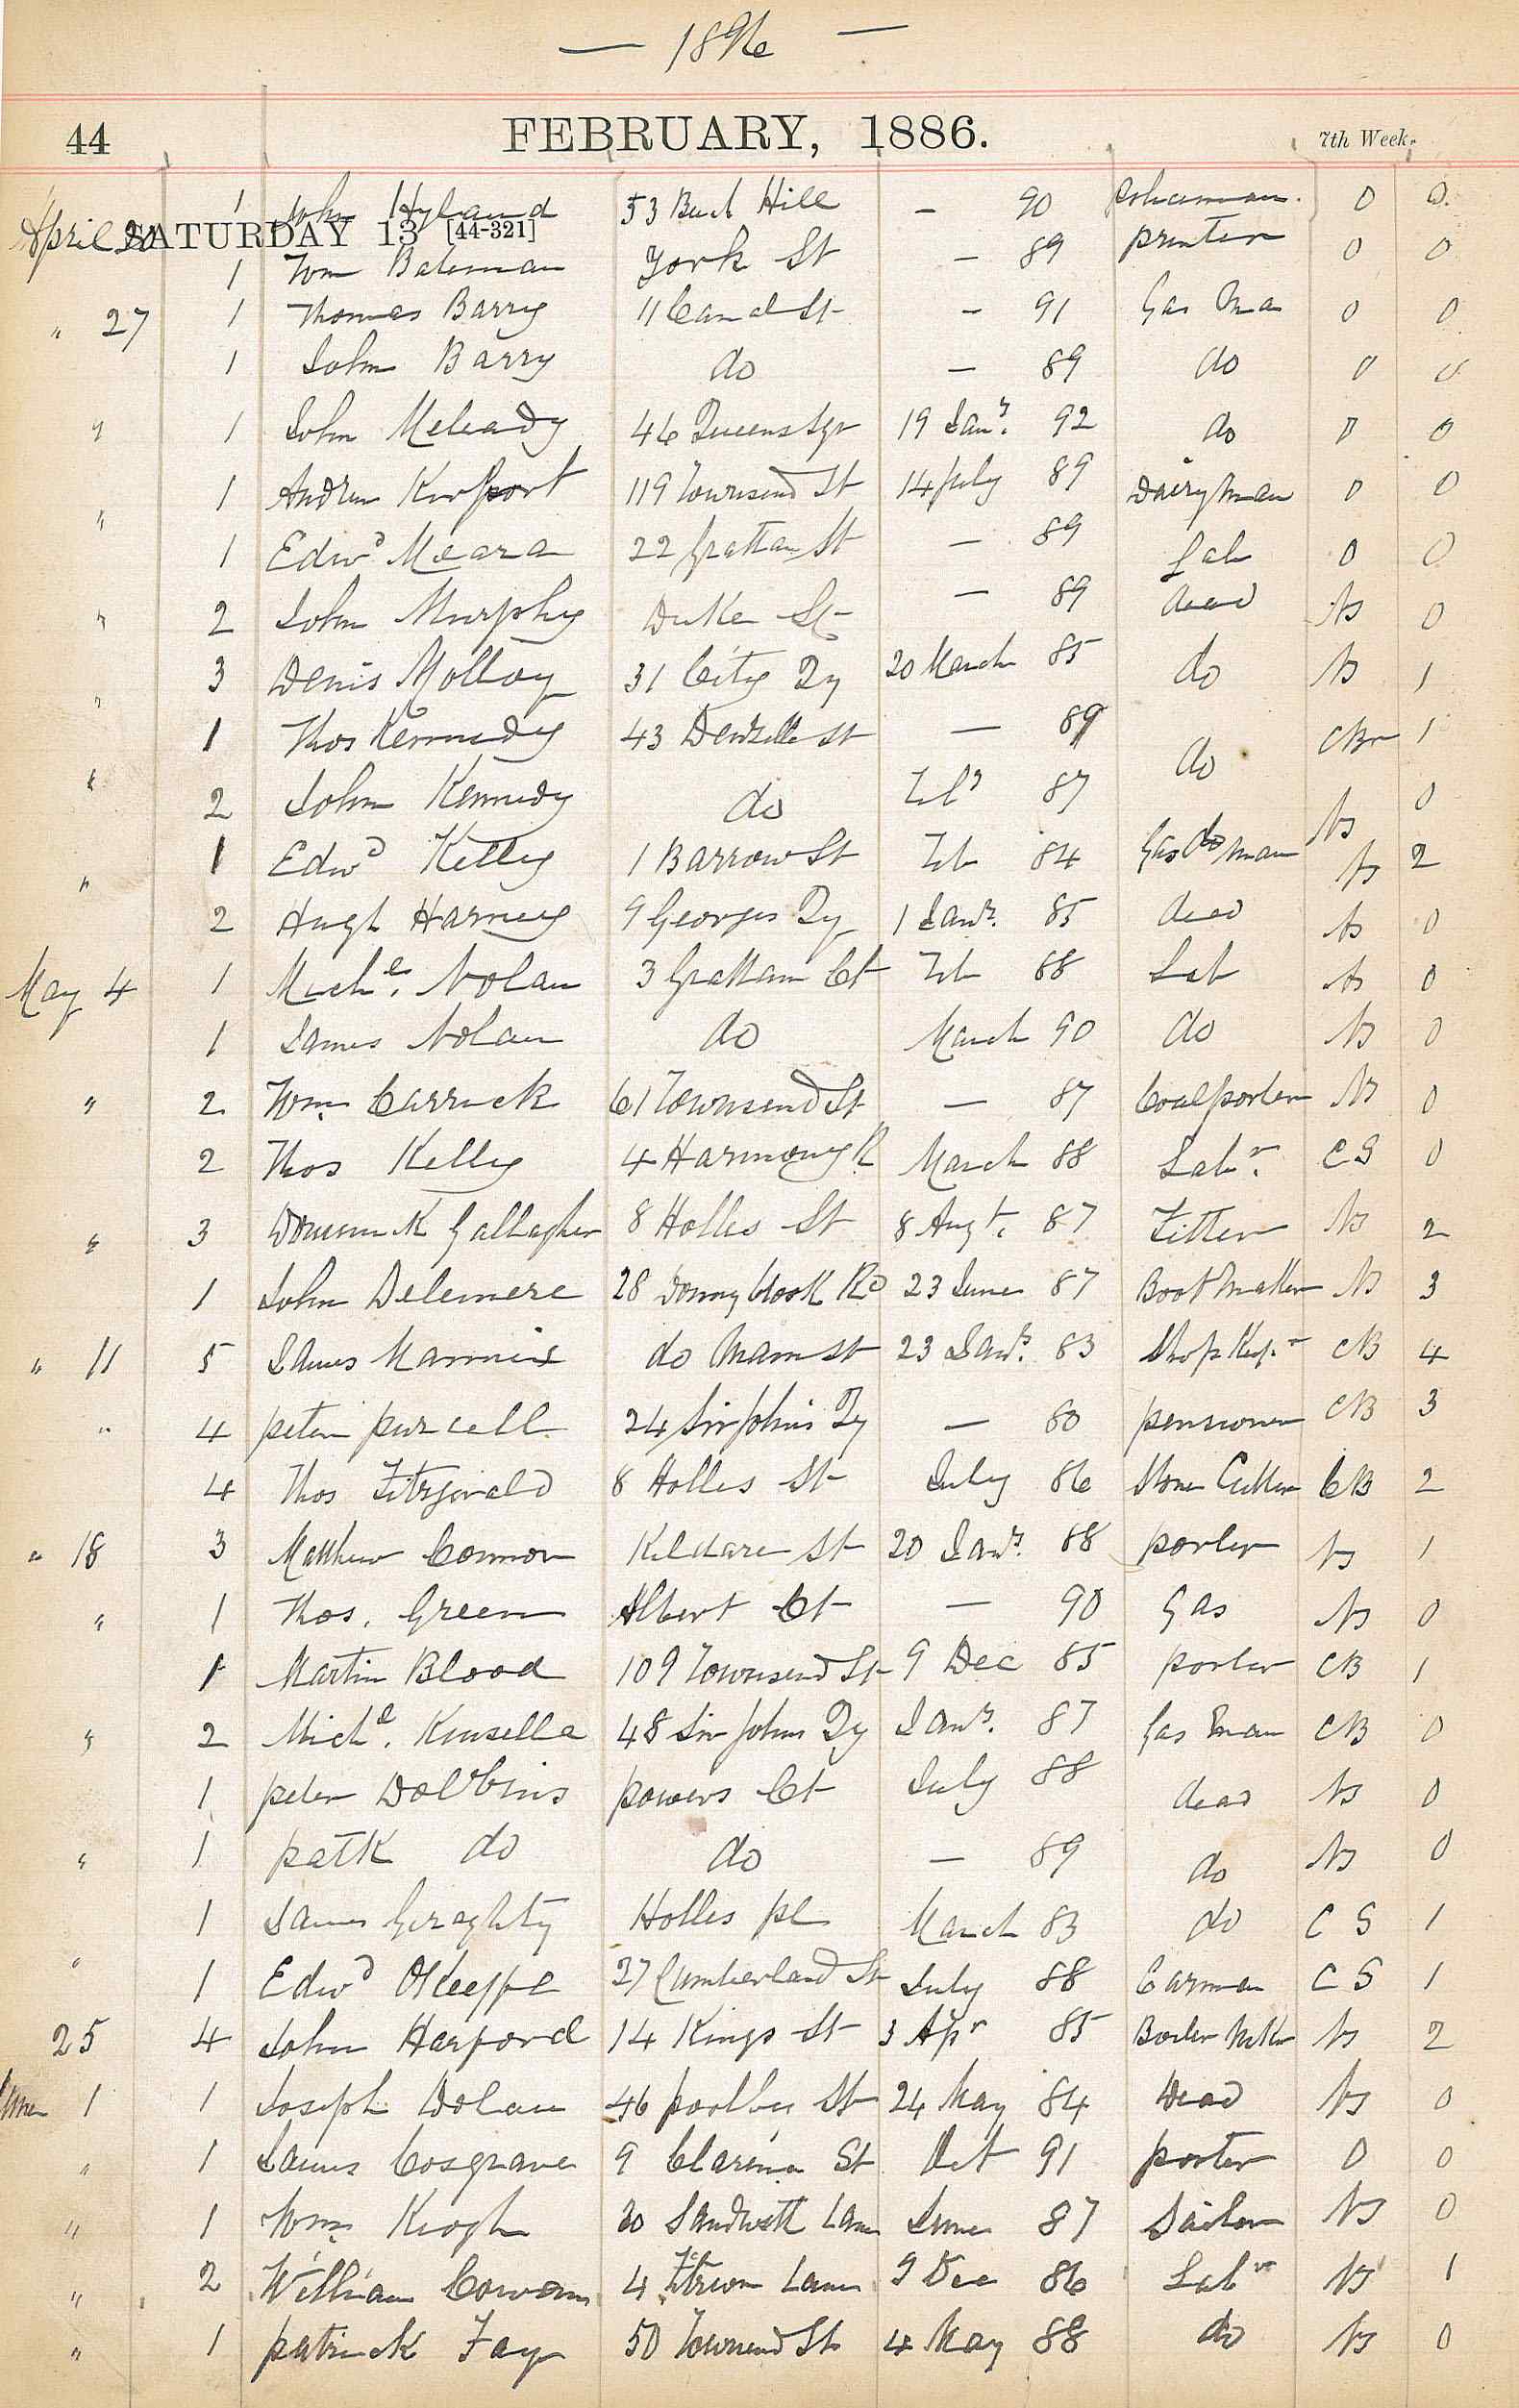 — 1896 —
44 FEBRUARY, 1886. 7th Week.
1 John Hyland 53 Hill — 90 policeman. 0 0.
April 20 SATURDAY 13 [44-321]
1 Wm Bateman York St — 89 printer 0 0
" 27 1 Thomas Barry 11 Canal St — 91 Gas Ma 0 0
1 John Barry do — 89 do 0 0
" 1 John Meleady 46 Queens Sqr 19 Jany. 92 do 0 0
" 1 Andrew 119 Townsend St 14 July 89 Dairyman 0 0
1 Edwd Meara 22 Grattan St — 89 Lab 0 0
" 2 John Murphy Duke St — 89 dead NS 0
" 3 Denis Molloy 31 City Qy 20 March 85 do NS 1
1 Thos Kennedy 43 Denzille St — 89 do CBr 1
" 2 John Kennedy do Feby 87 do NS 0
" 1 Edwd Kelly 1 Barrow St Feb 84 Gas man NS 2
2 Hugh Harney 9 Georges Qy 1 Jany. 85 dead NS 0
May 4 1 Michl. Nolan 3 Grattan Ct Feb 88 Lab NS 0
1 James Nolan do March 90 do NS 0
" 2 Wm. Carrick 61 Townsend St — 87 Coalporter NS 0
2 Thos Kelly 4 Harmony R March 88 Labr. CS 0
" 3 Dominick Gallagher 8 Holles St 8 Augt. 87 Fitter NS 2
1 John Delemere 28 Donnybrook Rd 23 June 87 Boot Maker NS 3
" 11 5 James Mannix do Main St 23 Jany. 83 Shop Kepr CB 4
" 4 peter purcell 24 Sir John's Qy — 80 pensioner CB 3
4 Thos Fitzgerald 8 Holles St July 86 Stone Cutter CB 2
" 18 3 Matthew Connor Kildare St 20 Jany. 88 porter NS 1
" 1 Thos. Green Albert Ct — 90 Gas NS 0
1 Martin Blood 109 Townsend St 9 Dec 85 porter CB 1
" 2 Michl. Kinsella 48 Sir Johns Qy Jany. 87 Gas man CB 0
1 peter Dobbins powers Ct July 88 dead NS 0
" 1 patk do do — 89 do NS 0
1 James Geraghty Holles pl March 83 do C S 1
" 1 Edwd OKeeffe 27 Cumberland St July 88 Carman C S 1
25 4 John Harford 14 Kings St 3 Apr 85 Boiler Mkr NS 2
June 1 1 Joseph Dolan 46 poolbeg St 24 May 84 Dead NS 0
" 1 James Cosgrave 9 Clarence St Oct 91 porter 0 0
" 1 Wm. Keogh 30 Sandwith Lane June 87 Sailor NS 0
" 2 William 4 Lane 9 Dec 86 Labr NS 1
" 1 patrick Fay 50 Townsend St 4 May 88 do NS 0